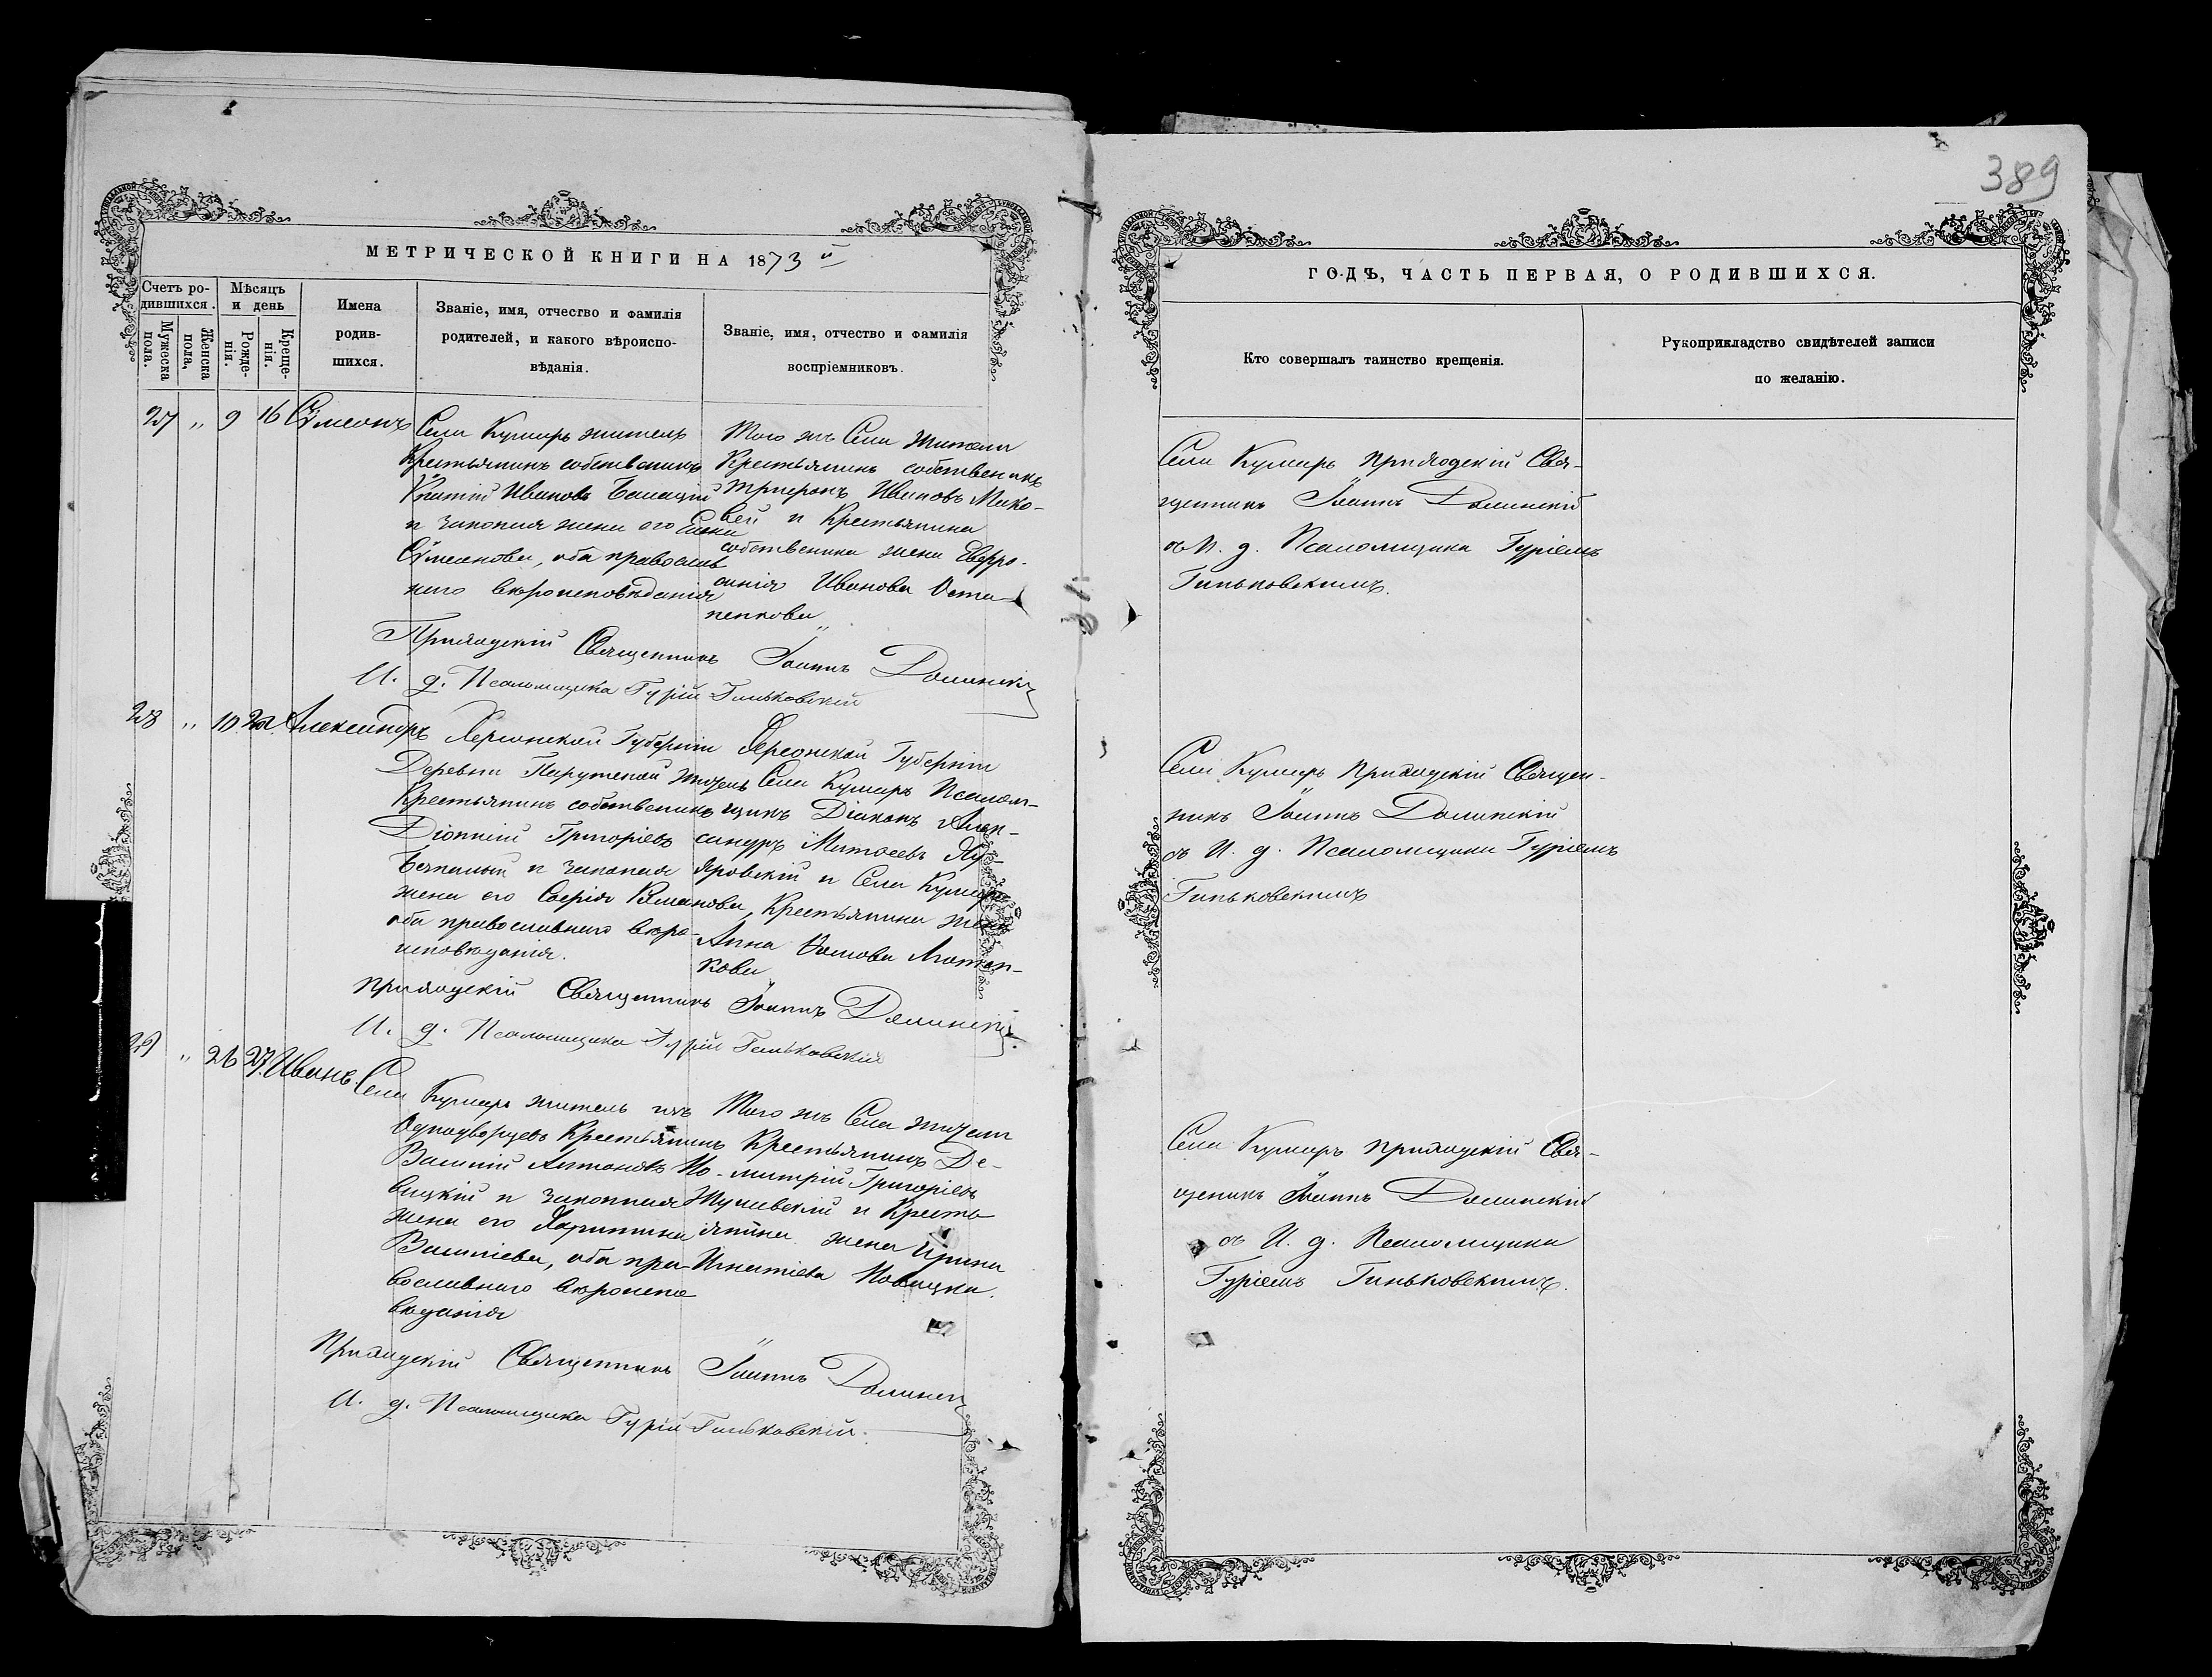 389
МЕТРИЧЕСКОЙ КНИГИ НА 1873 й
Счетъ ро-
дившихся.
Мужеска
пола.
Женска
пола.
Мѣсяцъ
и день
Рожде-
нія.
Креще-
нія.
Имена
родив-
шихся.
Званіе, имя, отчество и фамилія
родителей, и какого вѣроиспо-
вѣданія.
Званіе, имя, отчество и фамилія
воспріемниковъ.
27 „ 9 16 Сѵмеонъ
Села Кумаръ житель
Крестьянинъ собственникъ
Ивановъ
и законная жена его Елена
Сѵмеонова, оба православ
наго вѣроисповѣданія
Того жъ Села жители
Крестьянинъ собственникъ
Трифонъ Ивановъ Мако-
вей и Крестьянина
собственника жена Евфро-
синія Иванова Оста-
пенкова „
Приходскій Священникъ Іоаннъ Долинскій
И. д. Псаломщика Гурій Гиньковскій
28 „ 10 22. Александръ
Херсонской Губерніи
Деревни житель
Крестьянинъ собственникъ
Діонисій Григоріевъ
и законная
жена его Софія Романова
оба православнаго вѣро-
исповѣданія.
Херсонской Губерніи
Села Кумаръ Псалом-
щикъ Діаконъ Алек-
сандръ Матѳеевъ Ху-
дяровскій и Села Кумаръ
Крестьянина жена
Анна
кова
Приходскій Священникъ Іоаннъ Долинскій
И. д. Псаломщика Гурій Гиньковскій
29 „ 26 27. Иванъ
Села Кумаръ житель изъ
Однодворцевъ Крестьянинъ
Василій Антоновъ Но-
вицкій и законная
жена его Харитина
Василіева, оба пра-
вославнаго вѣроиспо
вѣданія
Того жъ Села жители
Крестьянинъ Де-
митрій Григоріевъ
и Кресть
янина жена Ирина
Игнатіева Новицка.
Приходскій Священникъ Іоаннъ Долинскій
И. д. Псаломщика Гурій Гиньковскій.
ГОДЪ, ЧАСТЬ ПЕРВАЯ, О РОДИВШИХСЯ.
Кто совершалъ таинство крещенія.
Рукоприкладство свидѣтелей записи
по желанію.
Села Кумаръ Приходскій Свя-
щенникъ Іоаннъ Долинскій
съ И. д. Псаломщика Гуріемъ
Гиньковскимъ.
Села Кумаръ Приходскій Священ-
никъ Іоаннъ Долинскій
съ И. д. Псаломщика Гуріемъ
Гиньковскимъ
Села Кумаръ Приходскій Свя-
щеникъ Іоаннъ Долинскій
съ И. д. Псаломщика
Гуріемъ Гиньковскимъ.